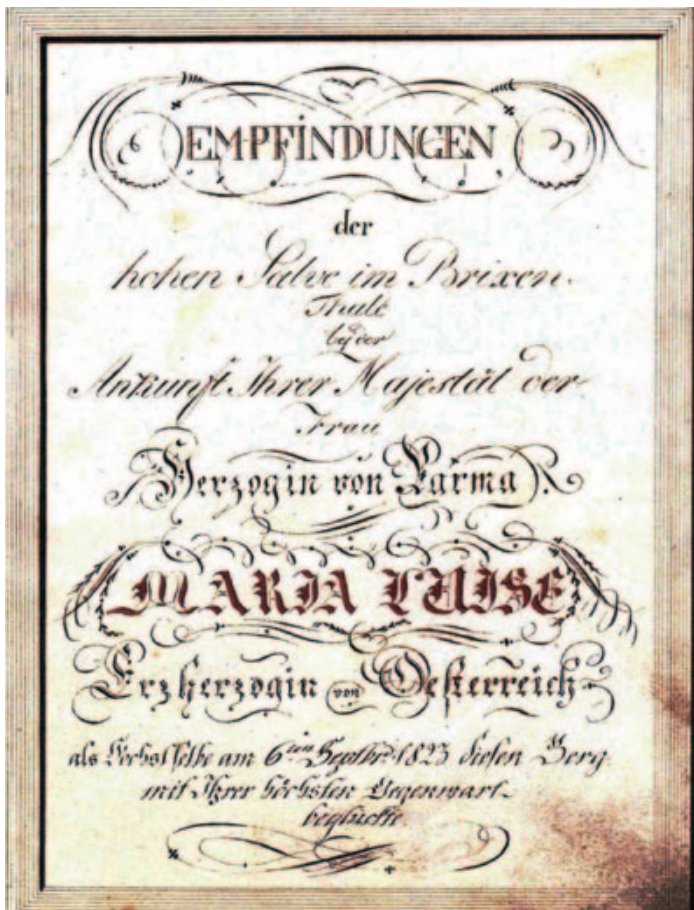 EMPFINDUNGEN
der
hohen Salve im Brixen-
Thale
bey der
Ankunft Ihrer Majestät der
Frau
Herzogin von Parma
MARIA LUISE
Erzherzogin von Oesterreich
als Höchstselbe am 6ten Septbr 1823 diesen Berg
mit Ihrer höchsten Gegenwart
beglückte